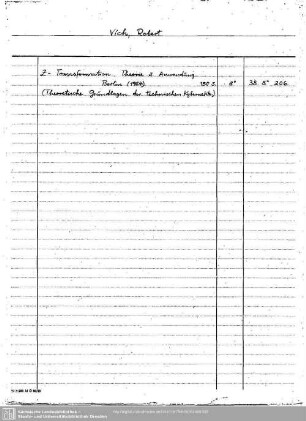 Vich, Robert
Z- Transformation. Theorie u. Anwendung.
Berlin (1964) 150 S. 8° 38. 8° 206
(Theoretische Grundlagen der technischen Kybernetik)
Sächsische Landesbibliothek -
Staats- und Universitätsbibliothek Dresden